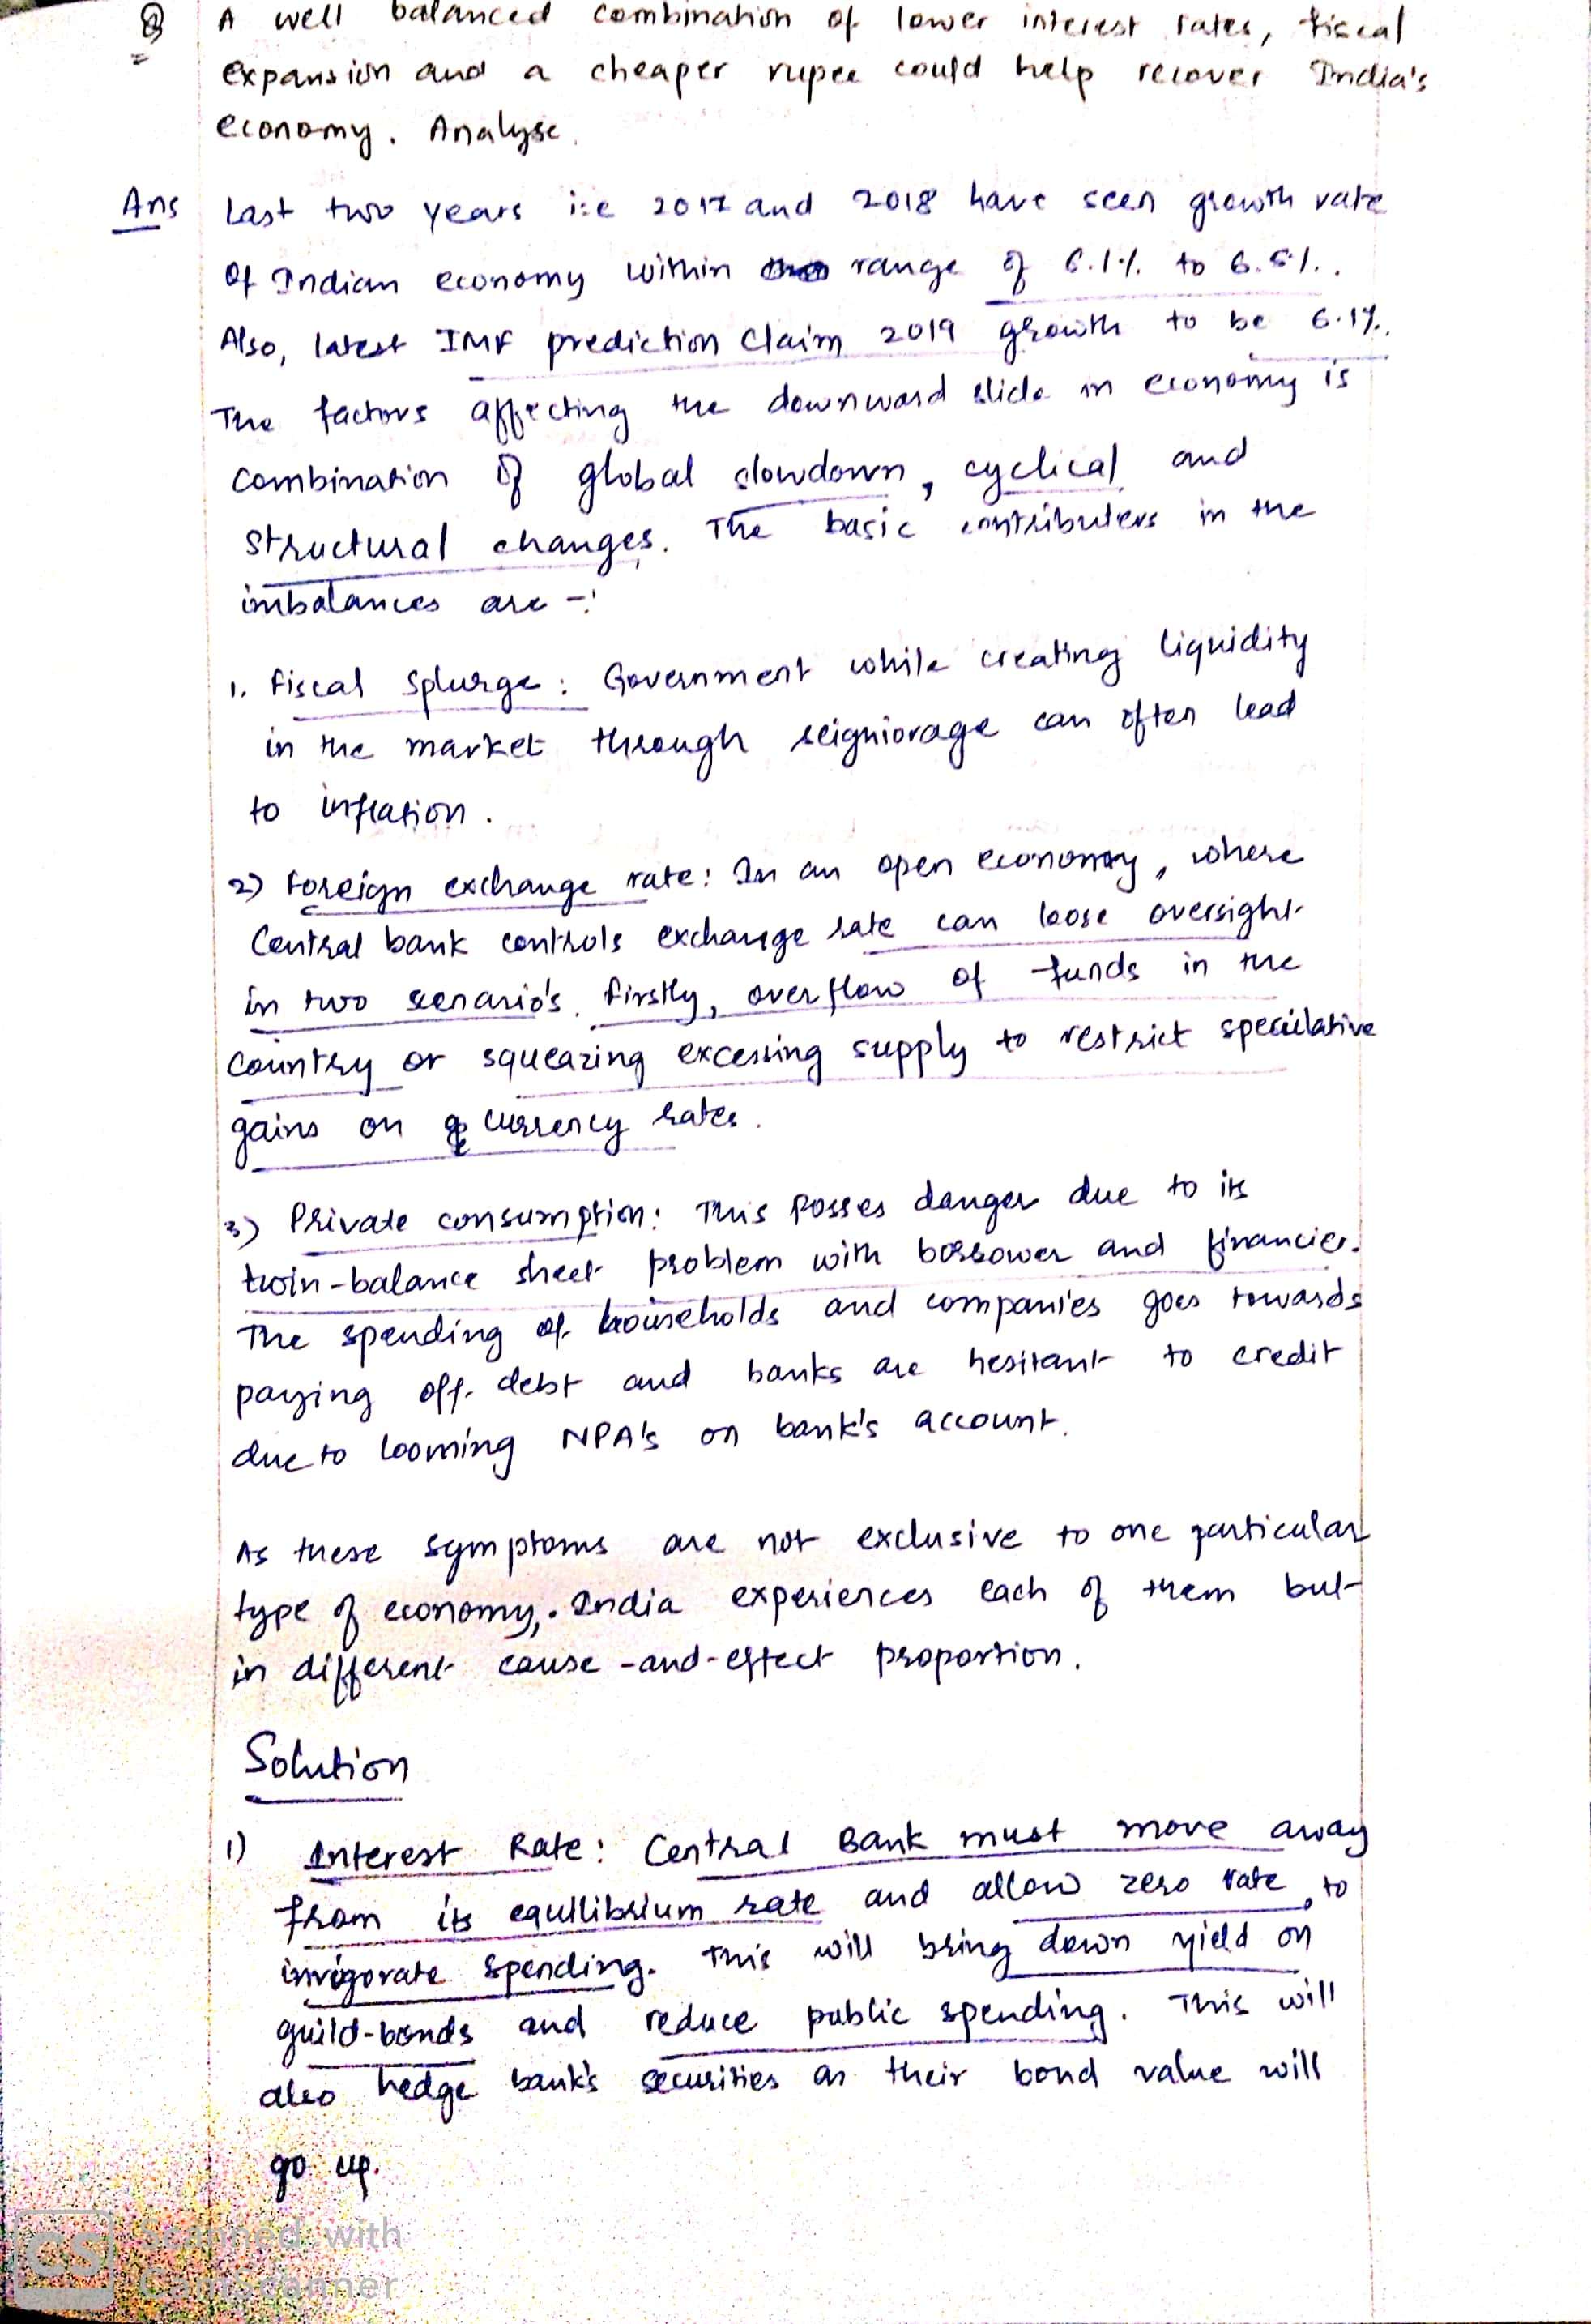 Q A well balanced combination of lower interest rates, fiscal
expansion and a cheaper rupee could help recover India's
economy. Analyse.
Ans Last two years i.e 2017 and 2018 have seen growth rate
of Indian economy within range of 6.1% to 6.5%.
Also, latest IMF prediction claim 2019 growth to be 6.1%.
The factors affecting the downward slide in economy is
combination of global slowdown, cyclical and
structural changes. The basic contributers in the
imbalances are -:
1. Fiscal splurge: Government while creating liquidity
in the market through seigniorage can often lead
to inflation.
2) Foreign exchange rate: In an open economy, where
Central bank controls exchange rate can loose oversight
in two scenario's. Firstly, overflow of funds in the
country or squeazing excessing supply to restrict speculative
gains on currency rates.
3) Private consumption: This posses danger due to its
twin-balance sheet problem with borrower and financier.
The spending of households and companies goes towards
paying off debt and banks are hesitant to credit
due to looming NPA's on bank's account.
As these symptoms are not exclusive to one particular
type of economy, India experiences each of them but
in different cause-and-effect proportion.
Solution
1) Interest Rate: Central Bank must move away
from its equllibrium rate and allow zero rate, to
invigorate spending. This will bring down yield on
guild-bonds and reduce public spending. This will
also hedge bank's securities as their bond value will
go up.
CS Scanned with
CamScanner